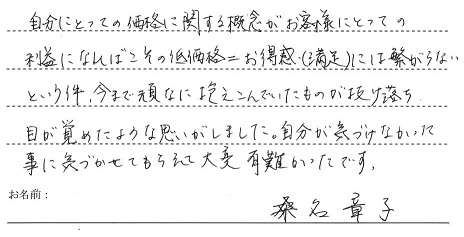 自分にとっての価格に関する概念がお客様にとっての
利益になればこその低価格＝お得感(満足)には繋がらない
という件、今まで頑なに抱えこんでいたものが抜け落ち
目が覚めたような思いがしました。自分が気づけなかった
事に気づかせてもらえて大変有難かったです。
お名前：
桑名章子